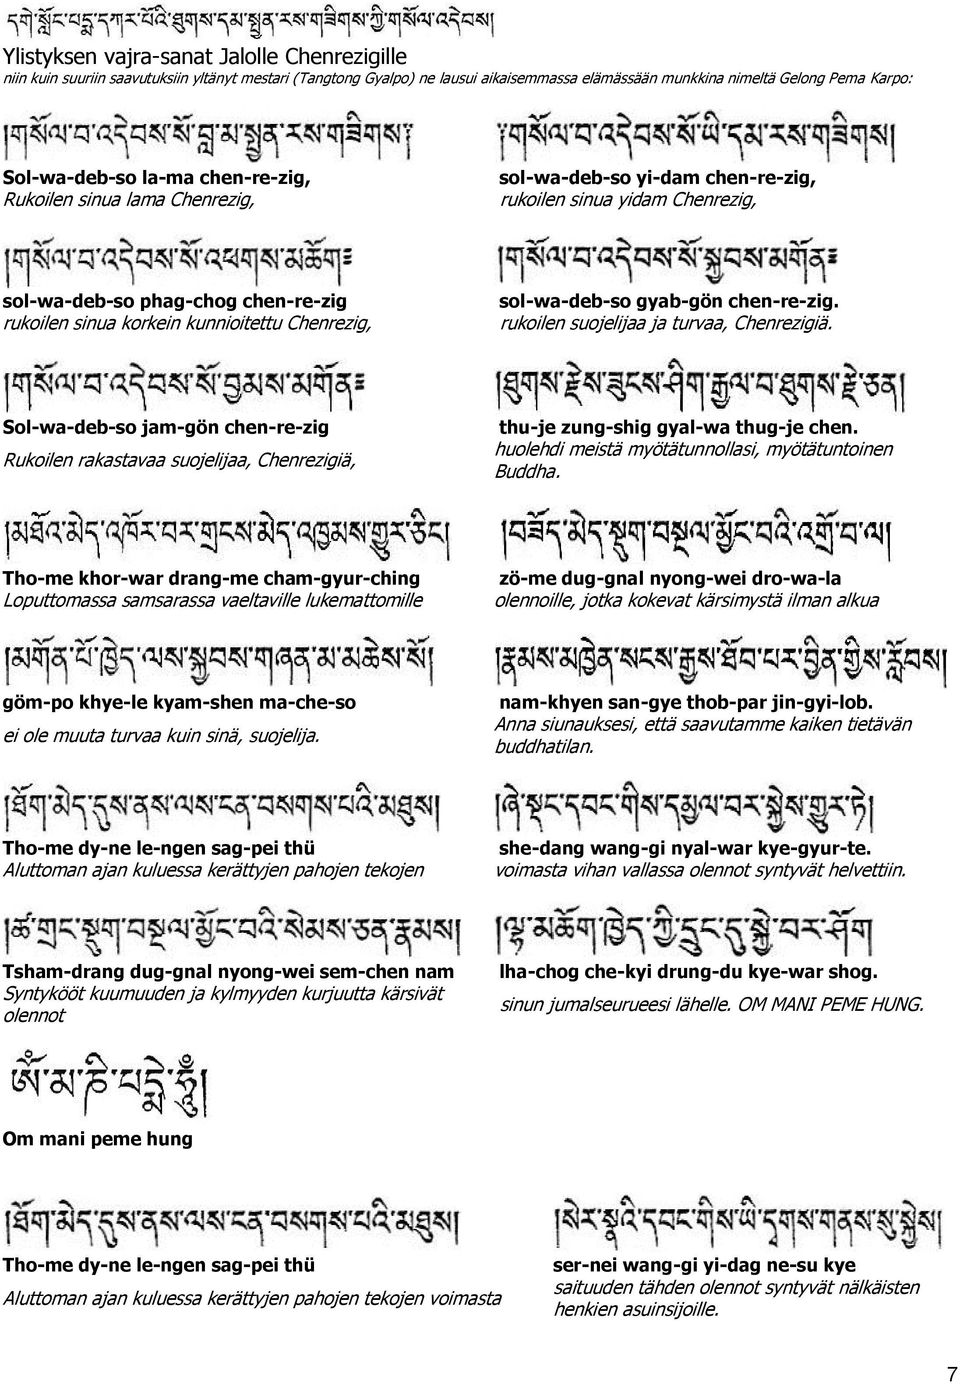 དགེ་སློང་པདྨ་དཀར་པོའི་ཐུགས་དམ་སྤྱན་རས་གཟིགས་ཀྱི་གསོལ་འདེབས།
Ylistyksen vajra-sanat Jalolle Chenrezigille
niin kuin suuriin saavutuksiin yltänyt mestari (Tangtong Gyalpo) ne lausui aikaisemmassa elämässään munkkina nimeltä Gelong Pema Karpo:
།གསོལ་བ་འདེབས་སོ་བླ་མ་སྤྱན་རས་གཟིགས༔ ༔གསོལ་བ་འདེབས་སོ་ཡི་དམ་རས་གཟིགས།
Sol-wa-deb-so la-ma chen-re-zig, sol-wa-deb-so yi-dam chen-re-zig,
Rukoilen sinua lama Chenrezig, rukoilen sinua yidam Chenrezig,
།གསོལ་བ་འདེབས་སོ་འཕགས་མཆོག༔ །གསོལ་བ་འདེབས་སོ་སྐྱབས་མགོན༔
sol-wa-deb-so phag-chog chen-re-zig sol-wa-deb-so gyab-gön chen-re-zig.
rukoilen sinua korkein kunnioitettu Chenrezig, rukoilen suojelijaa ja turvaa, Chenrezigiä.
།གསོལ་བ་འདེབས་སོ་བྱམས་མགོན༔ །ཐུགས་རྗེས་ཟུངས་ཤིག་རྒྱལ་བ་ཐུགས་རྗེ་ཅན།
Sol-wa-deb-so jam-gön chen-re-zig thu-je zung-shig gyal-wa thug-je chen.
Rukoilen rakastavaa suojelijaa, Chenrezigiä, huolehdi meistä myötätunnollasi, myötätuntoinen
Buddha.
།མཐོའ་མེད་འཁོར་བར་གྲངས་མེད་འཁྱམས་གྱུར་ཅིང། །བཟོད་མེད་སྡུག་བསྔལ་མྱོང་བའི་འགྲོ་བ་ལ།
Tho-me khor-war drang-me cham-gyur-ching zö-me dug-gnal nyong-wei dro-wa-la
Loputtomassa samsarassa vaeltaville lukemattomille olennoille, jotka kokevat kärsimystä ilman alkua
།མགོན་པོ་ཁྱེད་ལས་སྐྱབས་གཞན་མ་མཆེས་སོ། །རྣམས་མཁྱེན་སངས་རྒྱས་ཐོབ་པར་བྱིན་གྱིས་རློབས།
göm-po khye-le kyam-shen ma-che-so nam-khyen san-gye thob-par jin-gyi-lob.
ei ole muuta turvaa kuin sinä, suojelija. Anna siunauksesi, että saavutamme kaiken tietävän
buddhatilan.
།ཐོག་མེད་དུས་ནས་ལས་ངན་བསགས་པའི་མཐུས། །ཞེ་སྡང་དབང་གིས་དམྱལ་བར་སྐྱེས་གྱུར་ཏེ།
Tho-me dy-ne le-ngen sag-pei thü she-dang wang-gi nyal-war kye-gyur-te.
Aluttoman ajan kuluessa kerättyjen pahojen tekojen voimasta vihan vallassa olennot syntyvät helvettiin.
།ཚ་གྲང་སྡུག་བསྔལ་མྱོང་བའི་སེམས་ཅན་རྣམས། །ལྷ་མཆོག་ཁྱེད་ཀྱི་དྲུང་དུ་སྐྱེ་བར་ཤོག
Tsham-drang dug-gnal nyong-wei sem-chen nam lha-chog che-kyi drung-du kye-war shog.
Syntykööt kuumuuden ja kylmyyden kurjuutta kärsivät sinun jumalseurueesi lähelle. OM MANI PEME HUNG.
olennot
ཨོཾ་མ་ཎི་པདྨེ་ཧཱུྃ།
Om mani peme hung
།ཐོག་མེད་དུས་ནས་ལས་ངན་བསགས་པའི་མཐུས། །སེར་སྣའི་དབང་གིས་ཡི་དྭགས་གནས་སུ་སྐྱེས།
Tho-me dy-ne le-ngen sag-pei thü ser-nei wang-gi yi-dag ne-su kye
Aluttoman ajan kuluessa kerättyjen pahojen tekojen voimasta saituuden tähden olennot syntyvät nälkäisten
henkien asuinsijoille.
7